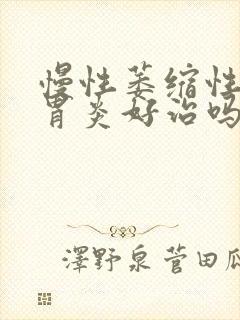 慢性萎缩性
胃炎好治吗
澤野泉菅田瓜